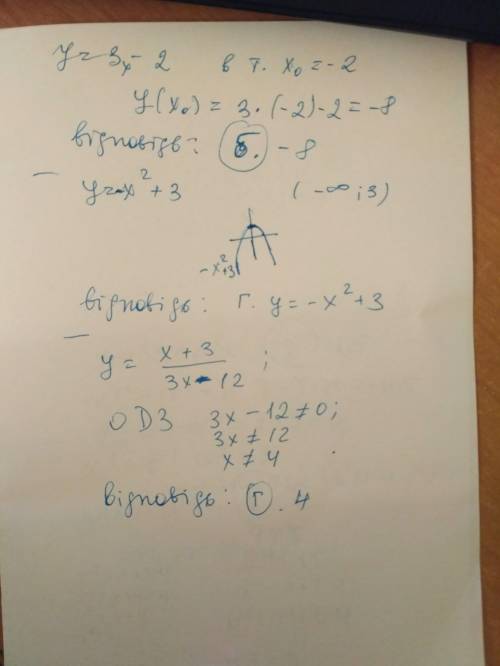 y = 3x - 2 в т. x₀ = -2
y(x₀) = 3 · (-2) - 2 = -8
відповідь: Б. -8
y = -x² + 3 (-∞; 3)
-x²+3
відповідь: Г. y = -x² + 3
y = (x + 3)/(3x - 12) ;
ОДЗ 3x - 12 ≠ 0;
3x ≠ 12
x ≠ 4
відповідь: Г. 4